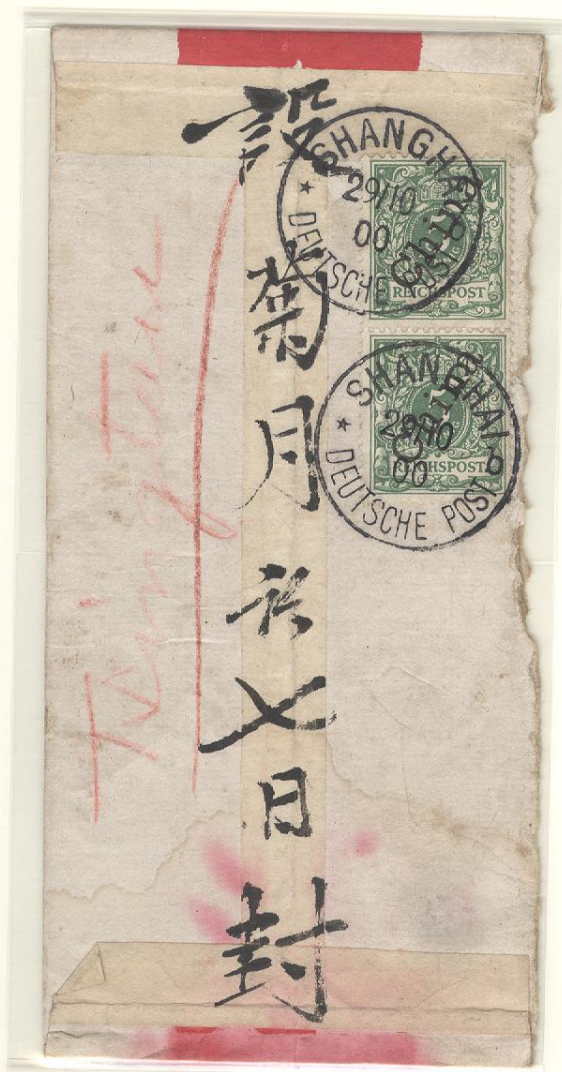 菊月初七日封
Tsingtau
SHANGHAI
29/10
00
* DEUTSCHE POST
China
REICHSPOST
SHANGHAI b
29/10
00
* DEUTSCHE POST
China
REICHSPOST